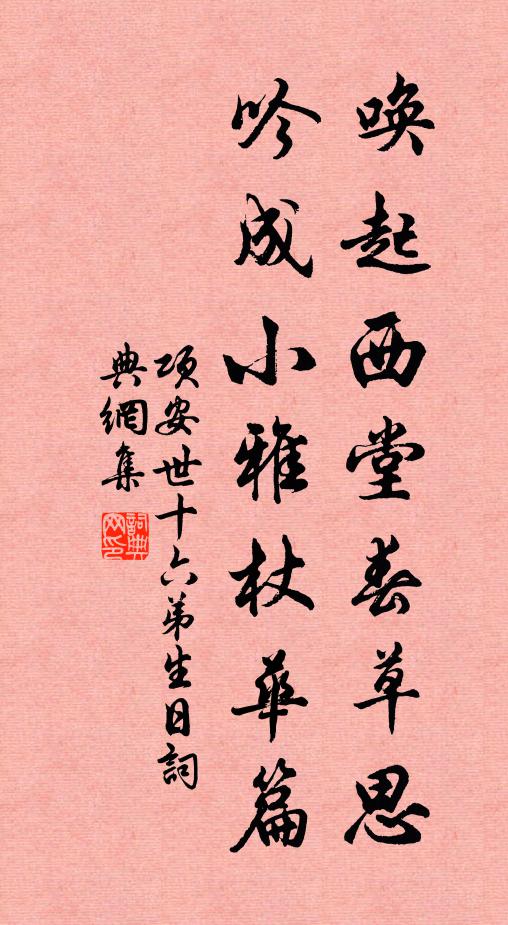 喚起西堂春草思
吟成小雅杕華篇
項安世十六弟生日詞
典網集
詞典網印